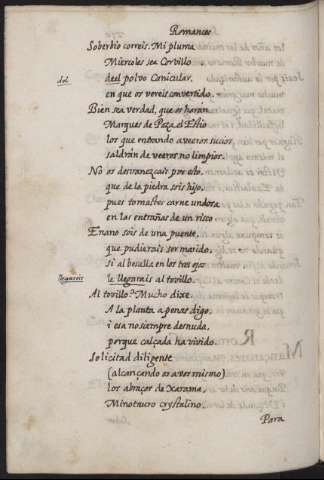 Romances
Soberbio correis. Mi pluma
Miercoles sea Corvillo
del
deel polvo Canicular,
en que os vereis convertido.
Bien sea verdad, que os harán
Marques de Poza, el Estio
los que entrando a veeros sucios
saldrán de veeros no limpios.
No os desvanezcais por esto,
que de la piedra sois hijo,
pues tomastes carne undosa
en las entrañas de un risco
Enano sois de una puente,
que pudierais ser marido,
si al besalla en los tres ojos
le llegarais al tovillo.
Al tovillo? Mucho dixe.
A la planta apenas digo,
i esa no siempre desnuda,
porque calçada ha vivido.
Solicitad diligente
(alcançando os a vos mismo)
los abraços de Xarama,
Minotauro crystalino.
Para